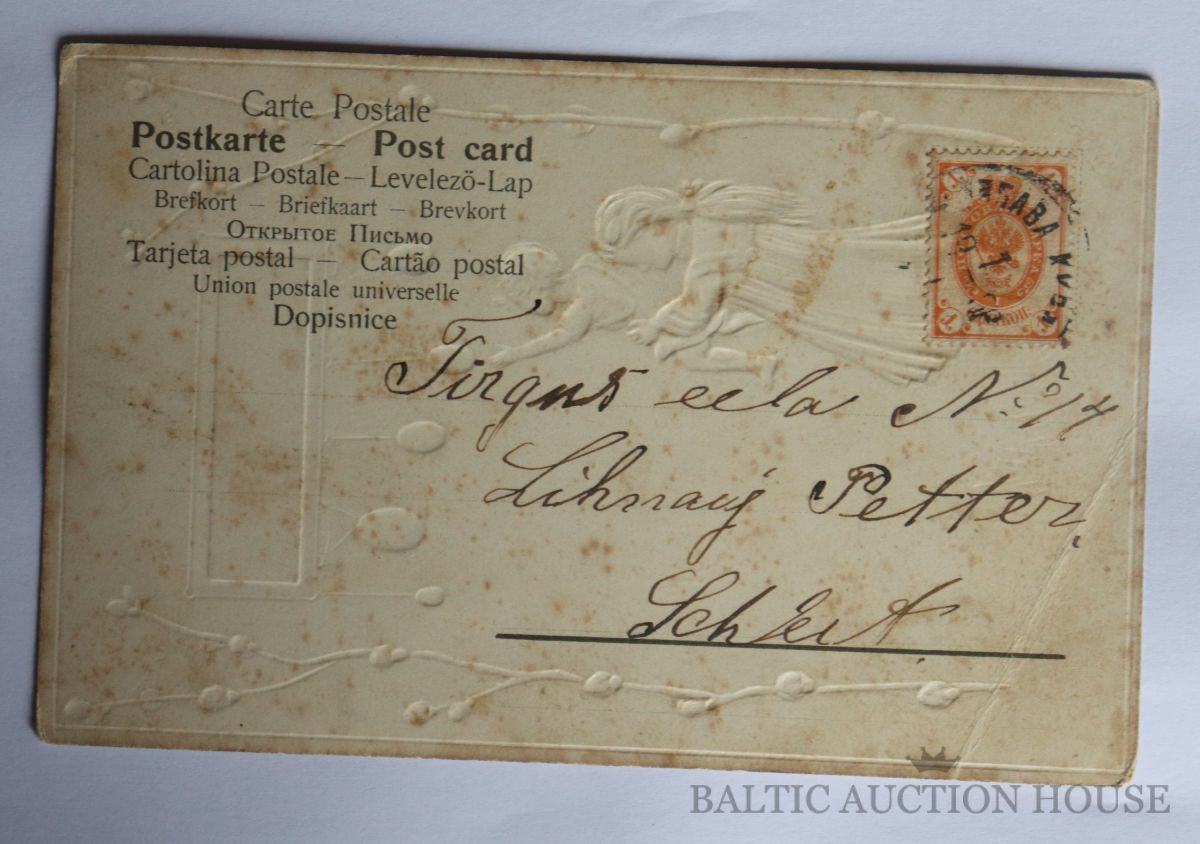 Carte Postale
Postkarte — Post card
Cartolina Postale — Levelezö-Lap
Brefkort — Briefkaart — Brevkort
Открытое Письмо
Tarjeta postal — Cartão postal
Union postale universelle
Dopisnice
Tirgus eela No 14
Petter
BALTIC AUCTION HOUSE